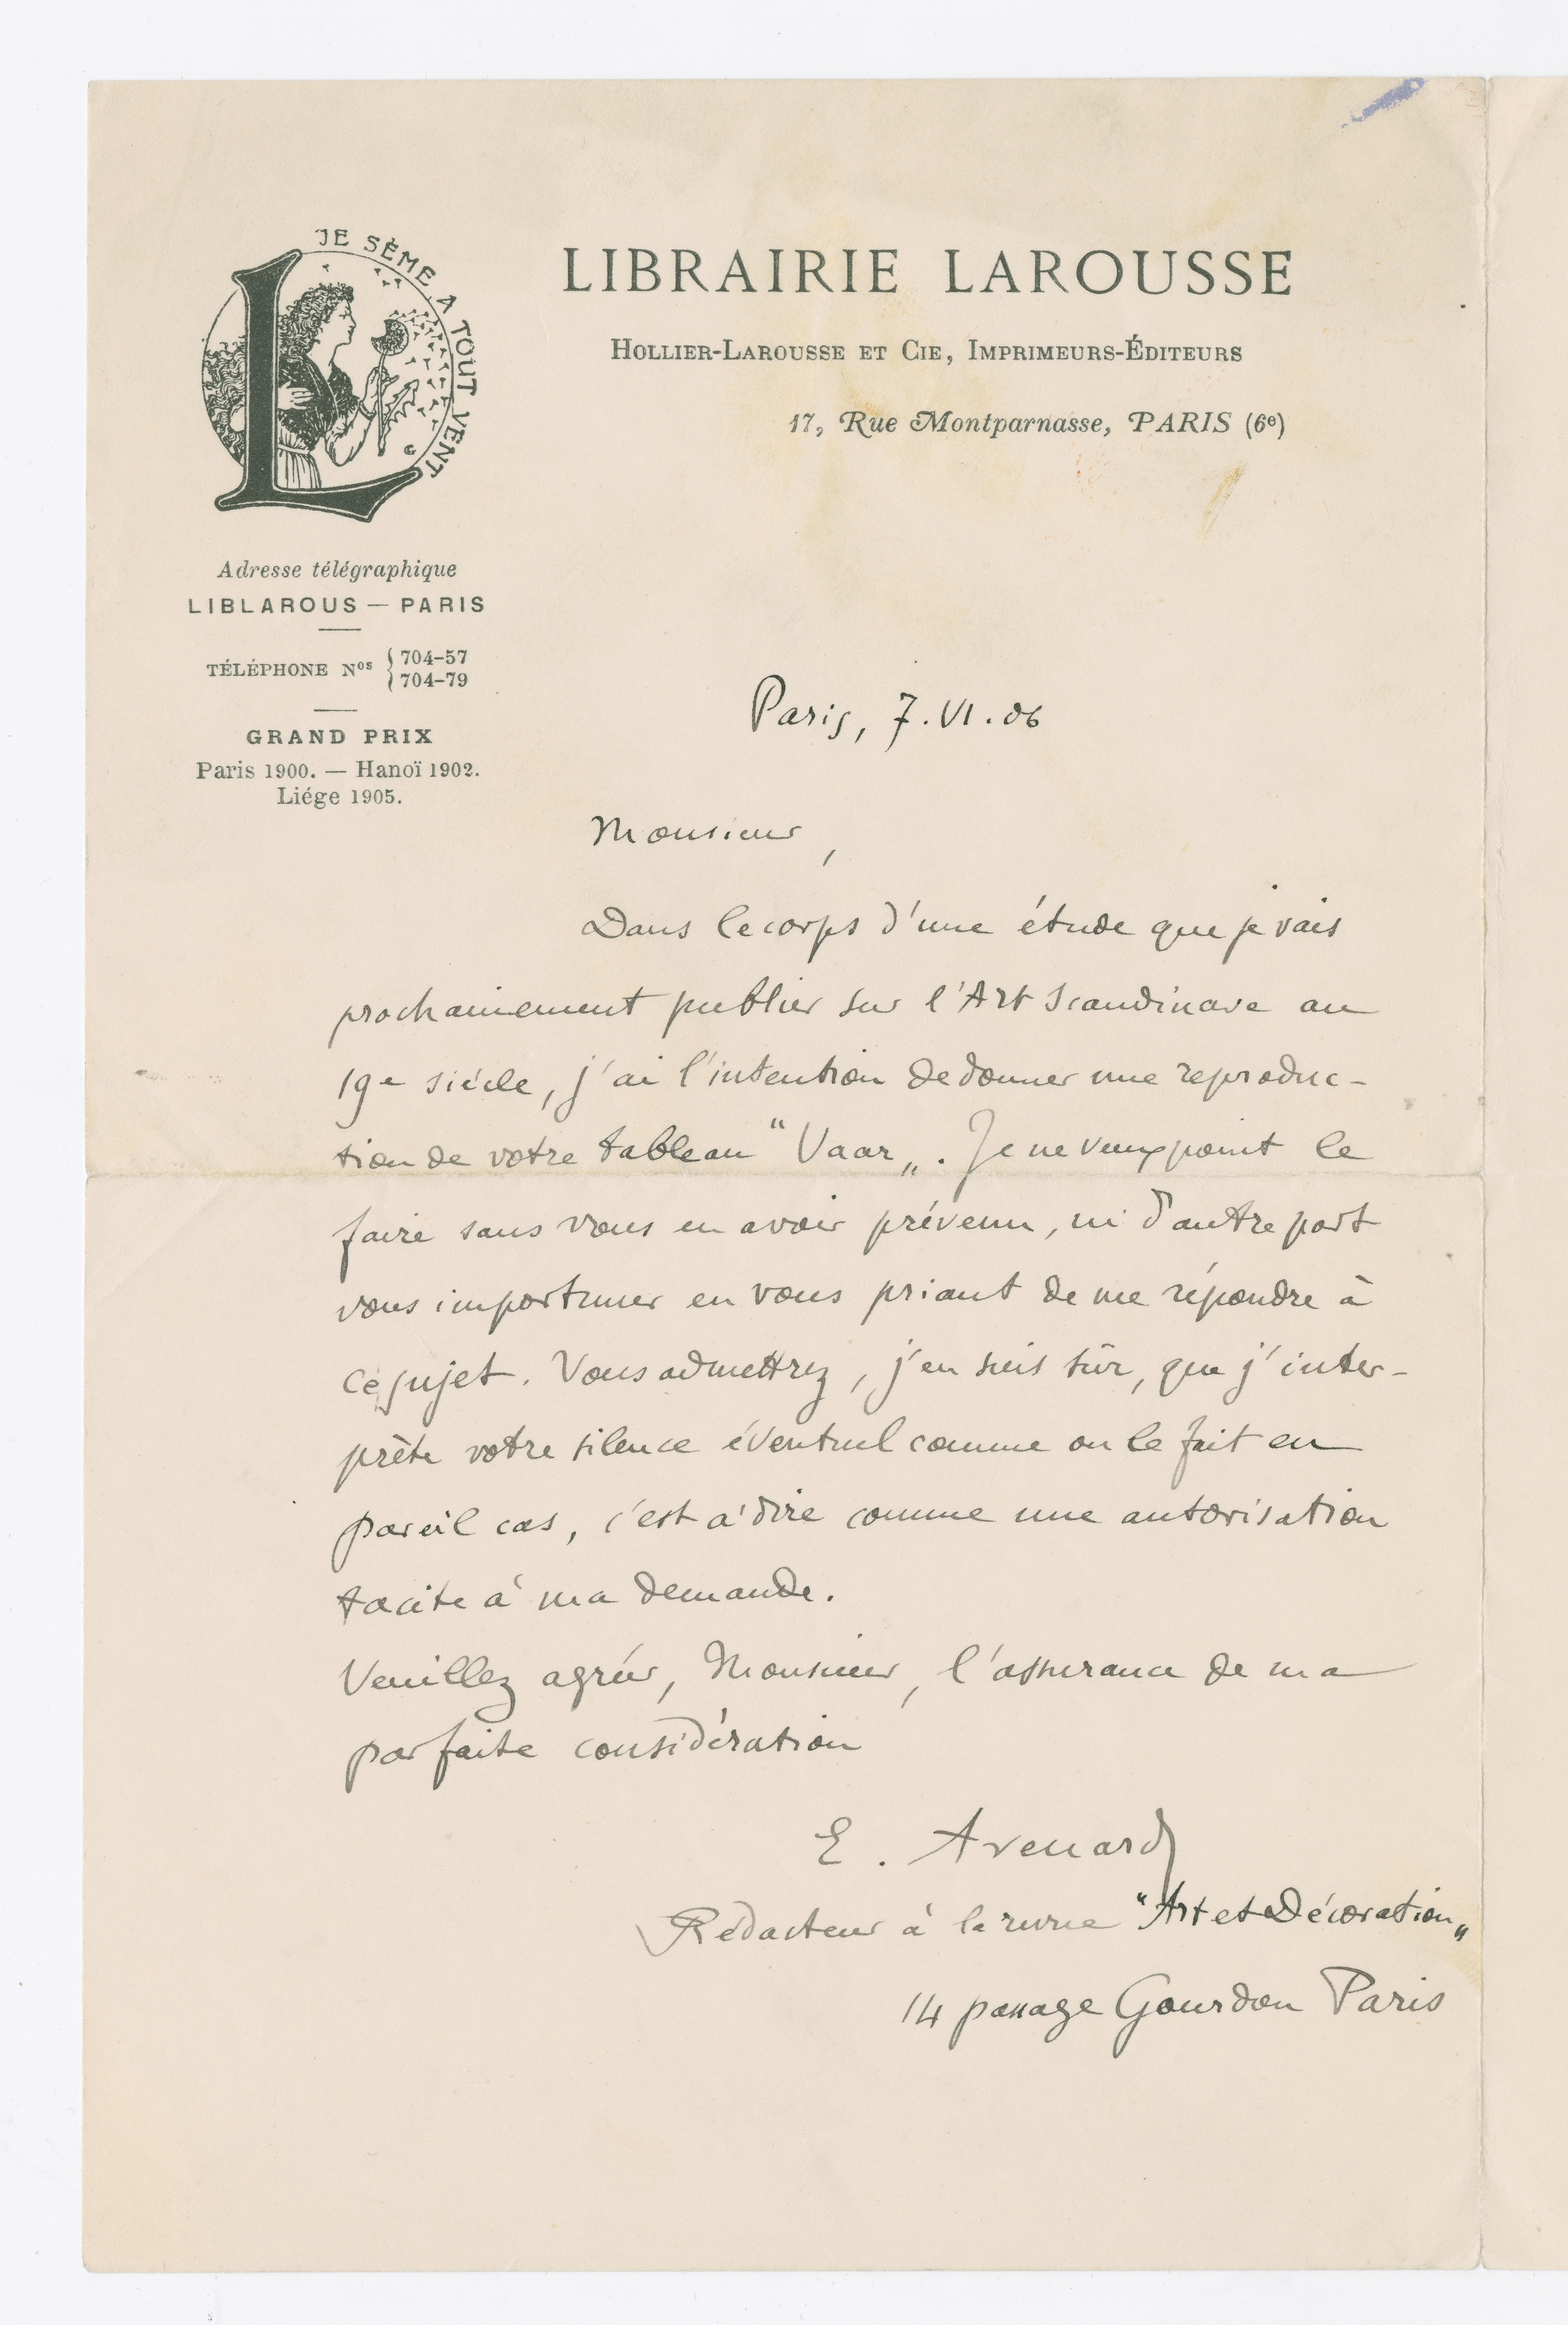 JE SÈME A TOUT VENT
LIBRAIRIE LAROUSSE
HOLLIER-LAROUSSE ET CIE, IMPRIMEURS-ÉDITEURS
17, Rue Montparnasse, PARIS (6e)
Adresse télégraphique
LIBLAROUS — PARIS
TÉLÉPHONE Nos { 704-57
704-79
GRAND PRIX
Paris 1900. — Hanoï 1902.
Liége 1905.
Paris, 7.VI.06
Monsieur,
Dans le corps d'une étude que je vais
prochainement publier sur l'Art Scandinave au
19e siècle, j'ai l'intention de donner une reproduc-
tion de votre tableau "Vaar„. Je ne veux point le
faire sans vous en avoir prévenu, ni d'autre part
vous importuner en vous priant de me répondre à
ce sujet. Vous admettrez, j'en suis sûr, que j'inter-
prète votre silence éventuel comme on le fait en
pareil cas, c'est à dire comme une autorisation
tacite à ma demande.
Veuillez agréer, Monsieur, l'assurance de ma
parfaite considération
E. Avenard
Rédacteur à la revue "Art et Décoration„
14 passage Gourdon Paris